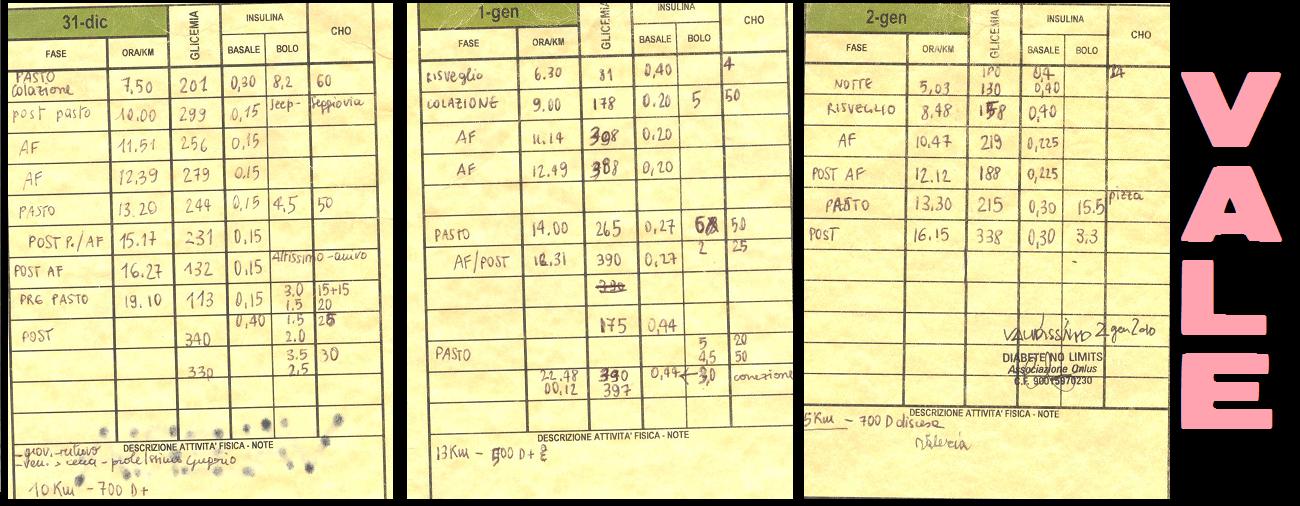 31-dic
GLICEMIA
INSULINA
CHO
FASE ORA/KM BASALE BOLO
PASTO
colazione 7,50 201 0,30 8,2 60
post pasto 10.00 299 0,15 Jeep- Seppiovia
AF 11.51 256 0,15
AF 12,39 279 0.15
PASTO 13.20 244 0,15 4,5 50
POST P./AF 15.17 231 0,15
POST AF 16.27 132 0,15 Altissimo-arrivo
PRE PASTO 19.10 113 0,15 3.0 15+15
1.5 20
POST 340 0,40 1.5 25
2.0
3.5 30
330 2,5
DESCRIZIONE ATTIVITA' FISICA - NOTE
10 Km - 700 D+
1-gen
GLICEMIA
INSULINA
CHO
FASE ORA/KM BASALE BOLO
RISVEGLIO 6.30 81 0,40 4
COLAZIONE 9.00 178 0.20 5 50
AF 11.14 0.20
AF 12.49 0,20
PASTO 14.00 265 0,27 50
2 25
AF/POST 390 0,27
175 0,44
PASTO 5 20
4,5 50
22.48 0,44 3,0 correzione
00,12 397
DESCRIZIONE ATTIVITA' FISICA - NOTE
13 Km - 500 D+
2-gen
GLICEMIA
INSULINA
CHO
FASE ORA/KM BASALE BOLO
NOTTE 5,03 130 0,40
RISVEGLIO 8,48 0,40
AF 10,47 219 0,225
POST AF 12.12 188 0,225
PASTO 13,30 215 0,30 15.5 pizza
POST 16.15 338 0,30 3.3
2 gen 2010
DIABETE NO LIMITS
Associazione Onlus
C.F. 90015970230
DESCRIZIONE ATTIVITA' FISICA - NOTE
5 Km - 700 D discesa
Valeria
VALE